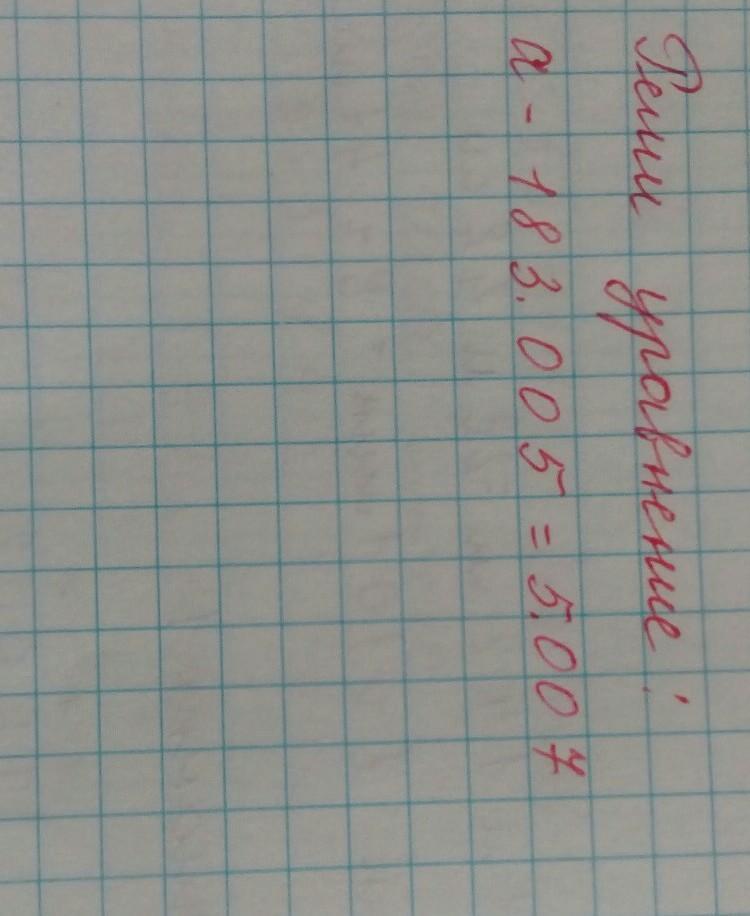 Реши уравнение!
а - 183.005 = 5.007